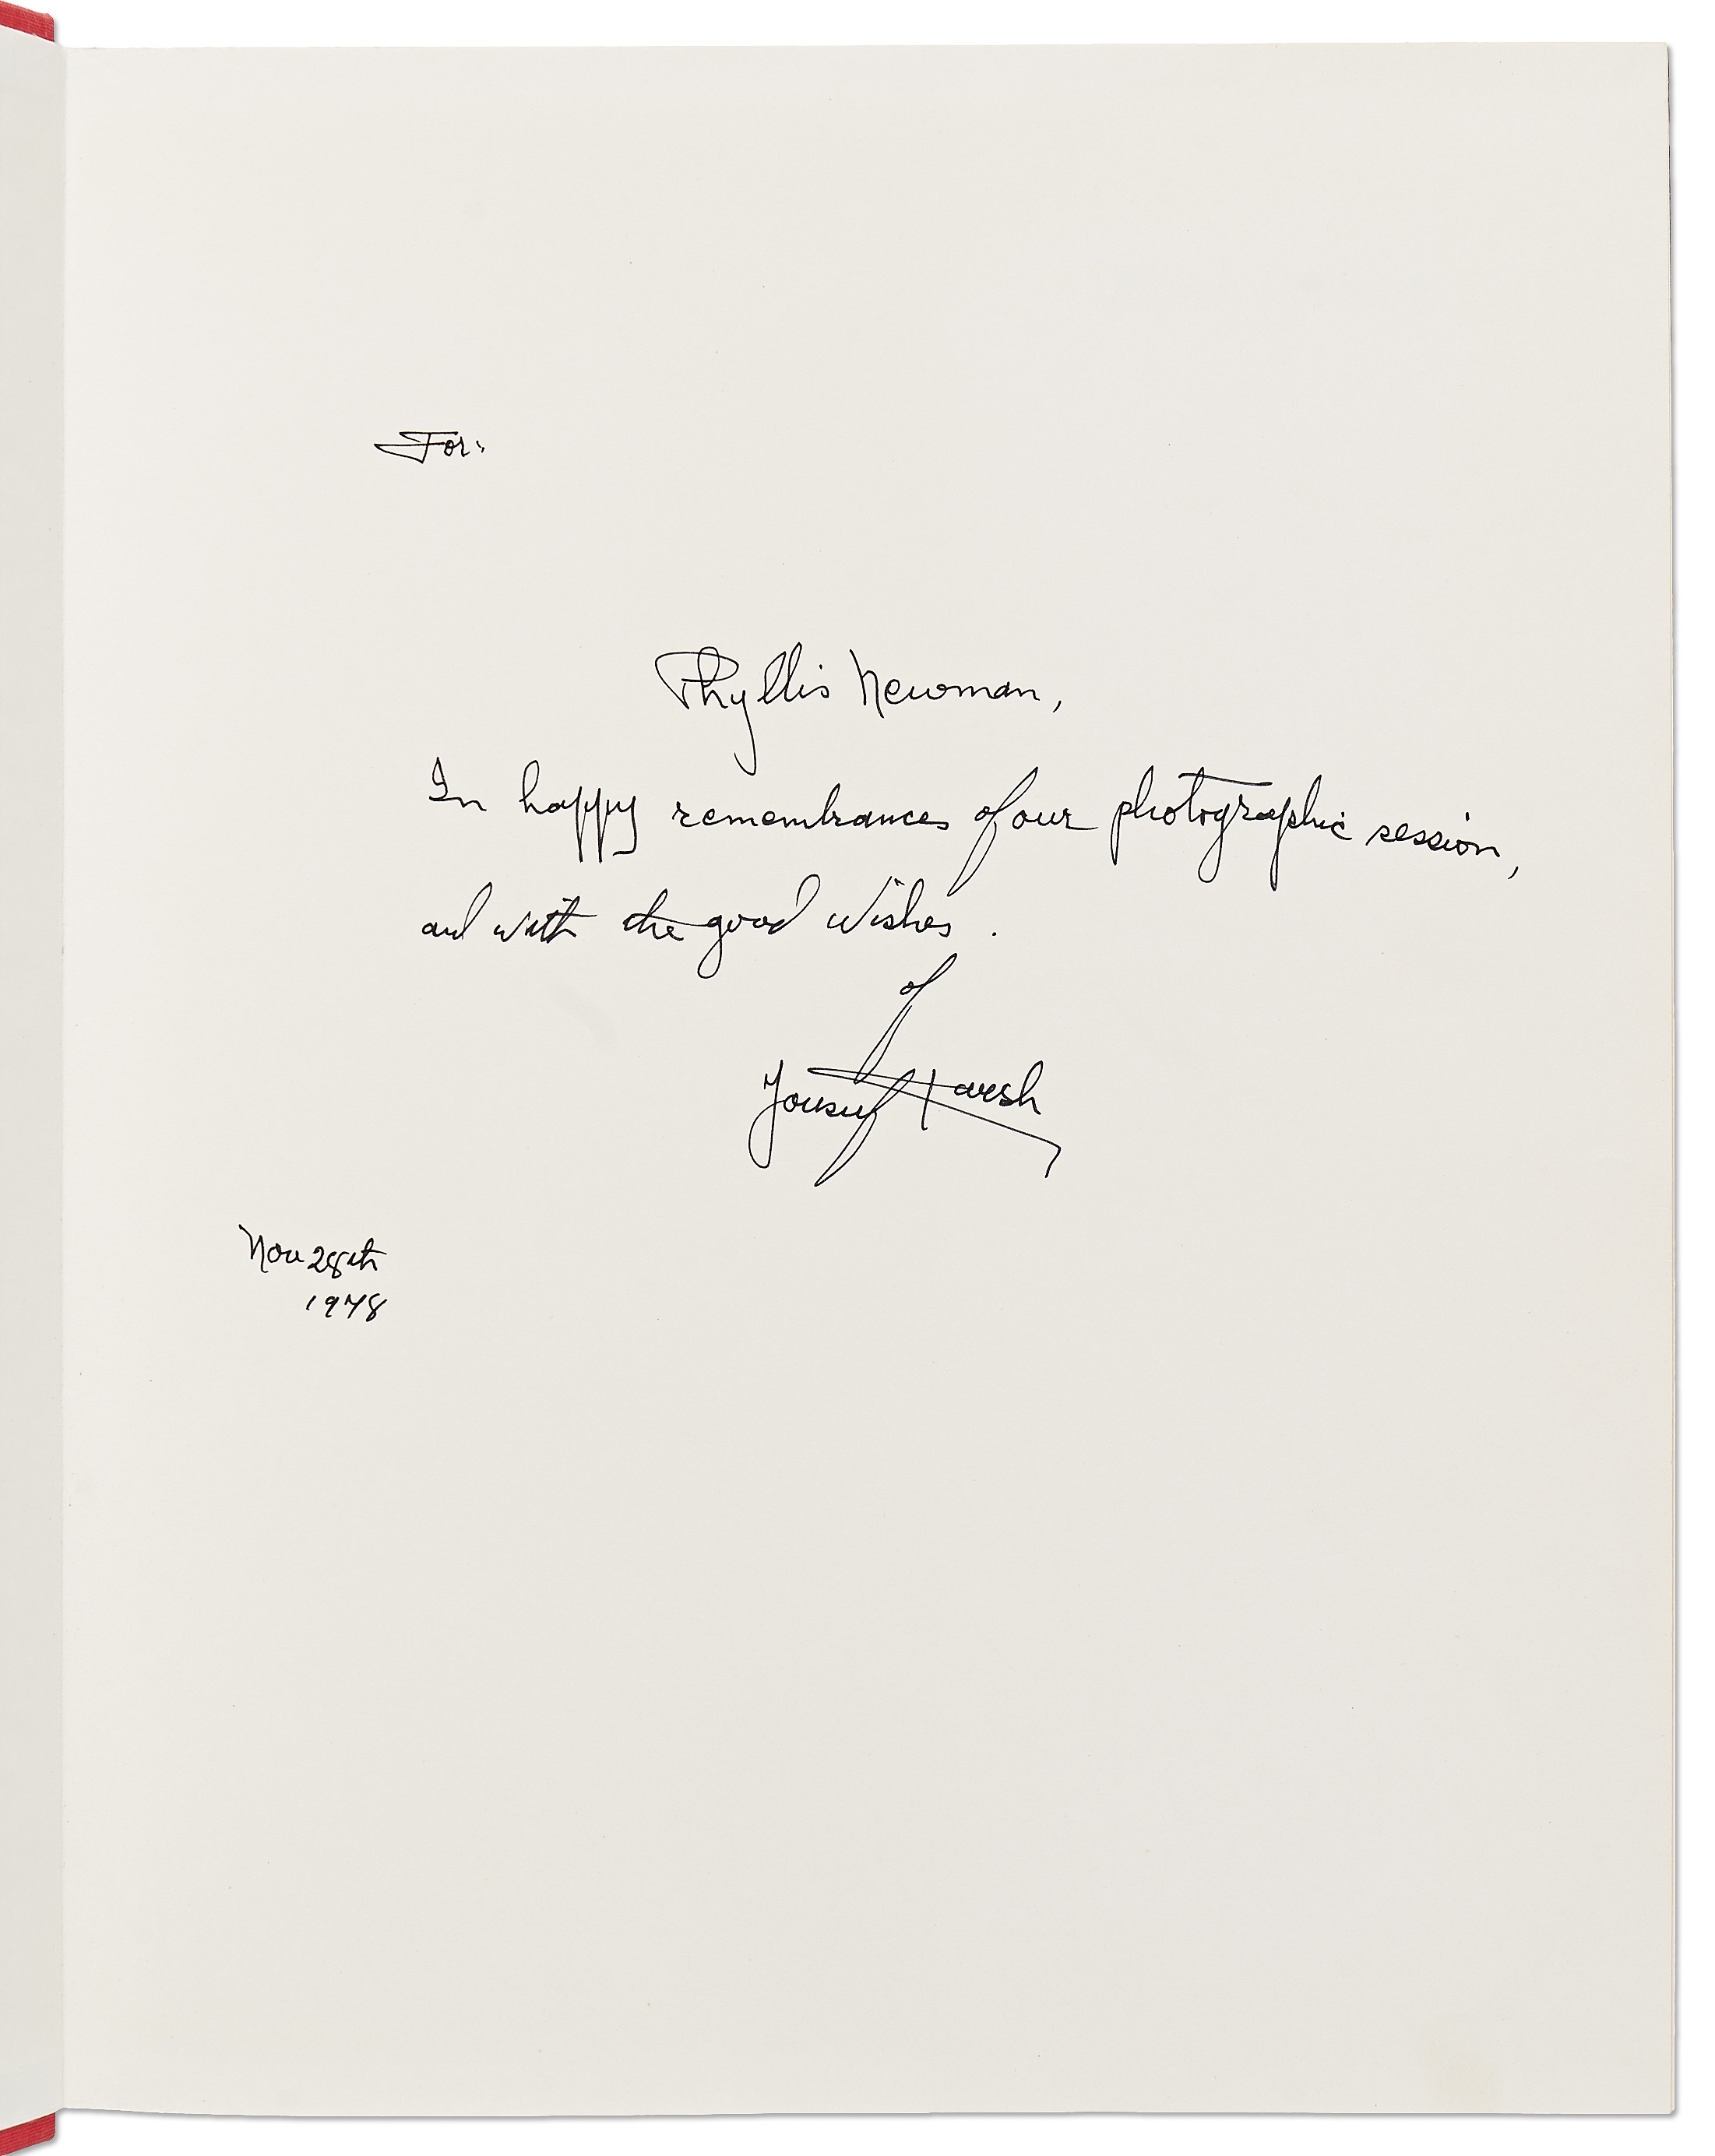 For:
Phyllis Newman,
In happy remembrances of our photographic session,
and with the good wishes.
of
Yousuf Karsh
Nov 28th
1978